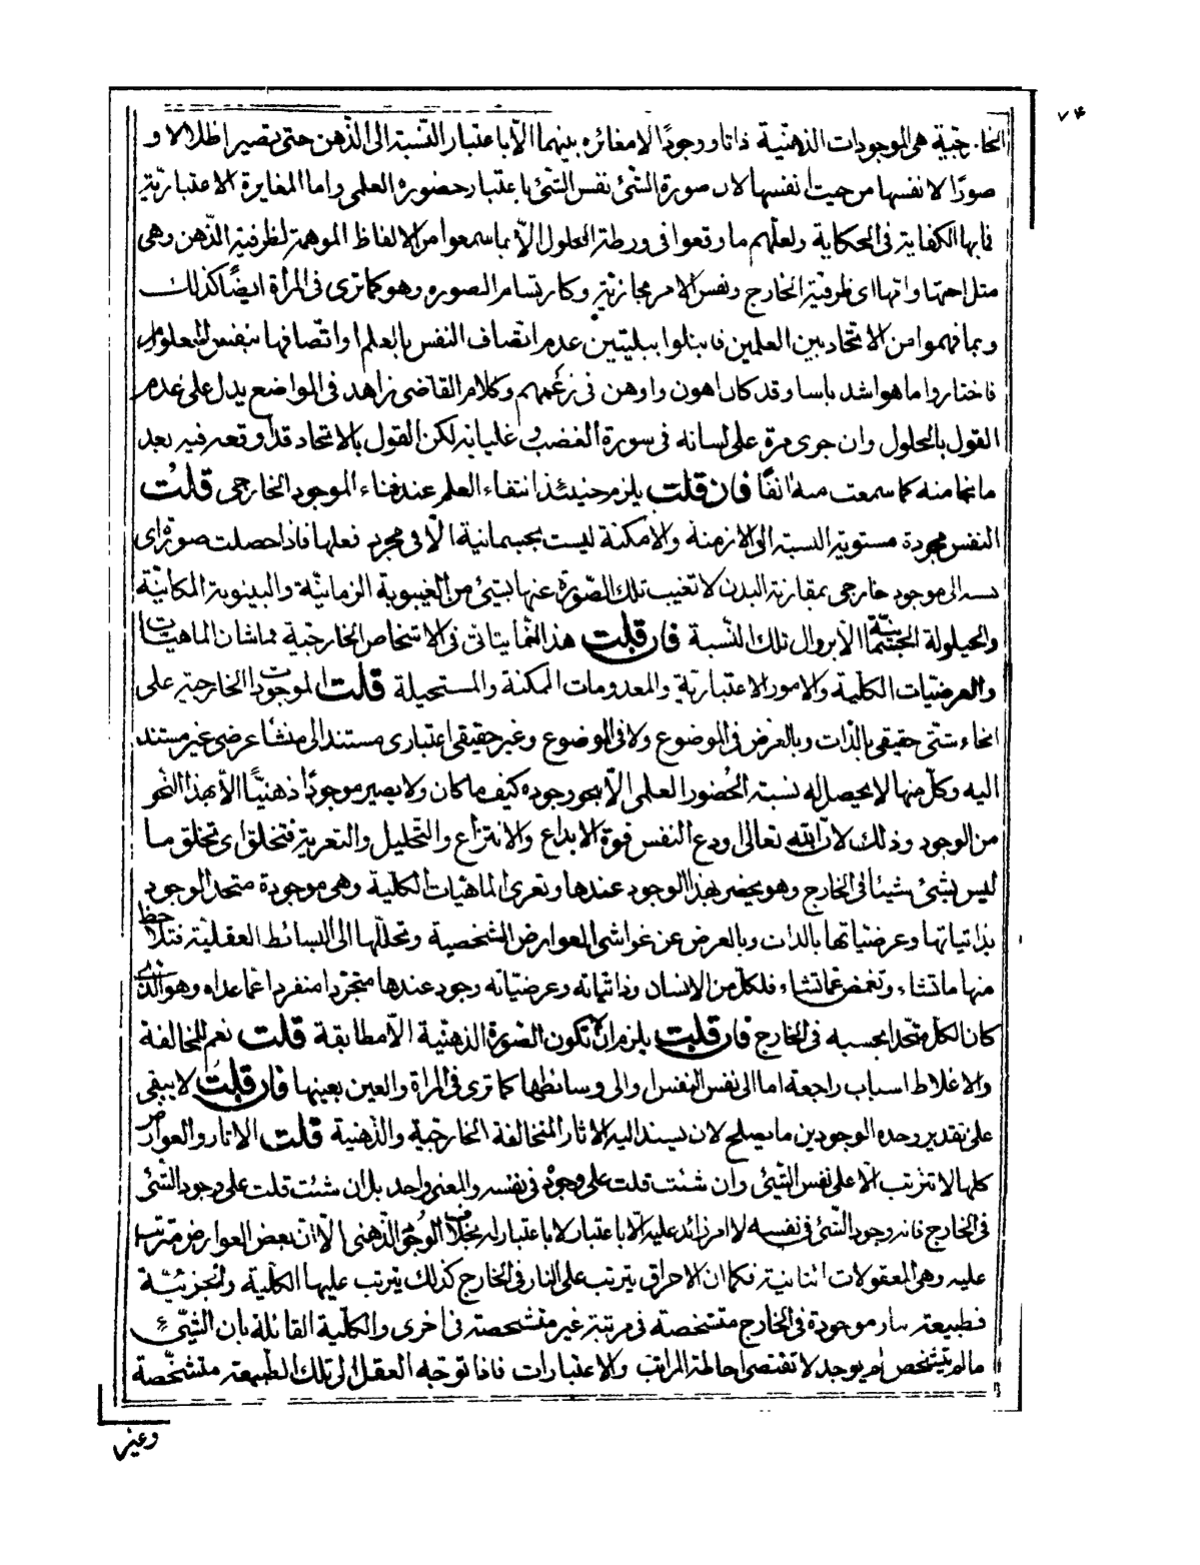 ٧٤
الخارجية هى الموجودات الذهنية ذاتا ووجودًا لا مغائره بينهما الّا باعتبار النّسبة الى الذّهن حتى تصير اظلالا و
صورًا لا نفسها من حيث انفسها لان صورة الشئ نفس الشئ باعتبار حضوره العلمى واما المغايرة الاعتبارية
فابها الكفاية فى الحكاية ولعلّهم ما وقعوا فى ورطة الحلول الّا بما سمعوا من الالفاظ الموهمة لظرفية الذّهن وهى
مثل اختها وانها اى ظرفية الخارج ونفس الامر مجازية وكارتسام الصوره وهو كما ترى فى المرأة ايضًا كذلك
وبما فهموا من الاتحاد بين العلمين فابتلوا ببليتين عدم اتصاف النفس بالعلم او اتّصافها بنفس المعلوم
فاختاروا ما هو اشد باسا وقد كان اهون واوهن فى زعمهم وكلام القاضى زاهد فى المواضع يدل على عدم
القول بالحلول وان جرى مرة على لسانه فى سورة الغضب وغليانه لكن القول بالاتحاد قد اوقعه فيه بعد
ما نجا منه كما سمعت منه انفًا فان قلت يلزم حينئذ انتفاء العلم عند فناء الموجود الخارجى قلت
النفس مجردة مستوية النسبة الى الازمنة والامكنة ليست بجسمانية الّا فى مجرد فعلها فاذا حصلت صورة اى
نسبه الى موجود خارجى بمقارنة البدن لا تغيب تلك الصّورة عنها بشئ من الغيبوبة الزمانيّة والبينونة المكانيّة
والحيلولة الجسمانية الّا بزوال تلك النّسبة فان قلت هذا انّما يتاتى فى الاشخاص الخارجية فما شان الماهيات
والعرضيّات الكلّية والامور الاعتبارية والمعدومات الممكنة والمستحيلة قلت الموجودات الخارجية على
انحاء شتّى حقيقى بالذّات وبالعرض فى الموضوع ولا فى الموضوع وغير حقيقى اعتبارى مستند الى منشا عرضى غير مستند
اليه وكلّ منها لا يحصل له نسبة الحُضور العلمى الّا بنحو وجوده كيف ما كان ولا يصير موجودًا ذهنيًّا الّا بهذا النّحو
من الوجود وذلك لانّ الله تعالى اودع النفس قوة الابداع والانتزاع والتّحليل والتعرية فتخلق اى تخلق ما
ليس بشئ شيئا فى الخارج وهو يحضر بهذا الوجود عندها وتعرى الماهيّات الكلّية وهى موجودة متحد الوجود
بذاتياتها وعرضياتها بالذات وبالعرض عن غواشى العوارض المشخصية وتحلّلها الى البسائط العقليّة فتلاحظ
منها ما تشاء وتغمض عمّا تشاء فلكلّ من الانسان وذاتياته وعرضيّاته وجود عندها متجرّدا منفردا عمّا عداه وهو الذى
كان الكلّ متّحدا بحسبه فى الخارج فان قلت يلزم ان لا تكون الصّورة الذهنّية الّا مطابقة قلت نعم المخالفة
والاغلاط اسباب راجعة اما الى نفس النفس او الى وسائطها كما ترى فى المرأة والعين بعينها فان قلت لا يبقى
على تقدير وحده الوجودين ما يصلح لان يسند اليه الاثار المتخالفة الخارجيّة والذّهنية قلت الاثار والعوارض
كلها لا تترتب الّا على نفس الشّئ وان شئت قلت على وجوده فى نفسه والمعنى واحد بل ان شئت قلت على وجود الشّئ
فى الخارج فانه وجود الشّئ فى نفسه لا امر زائد عليه الّا باعتبار لا باعتبار له بخلاف الوجود الذهنى الّا انّ بعض العوارض مترتب
عليه وهى المعقولات الثانية فكما ان الاحراق يترتب على النار فى الخارج كذلك يترتب عليها الكلّية والجزئيّة
فطبيعة النار موجودة فى الخارج متشخصة فى مرتبة غير متشخصة فى اخرى والكلّية القائلة بان الشّئ
ما لم يتشخص لم يوجد لا تقتضى احاطة المراتب والاعتبارات فاذا توجّه العقل الى تلك الطّبيعة متشخّصة
وغير